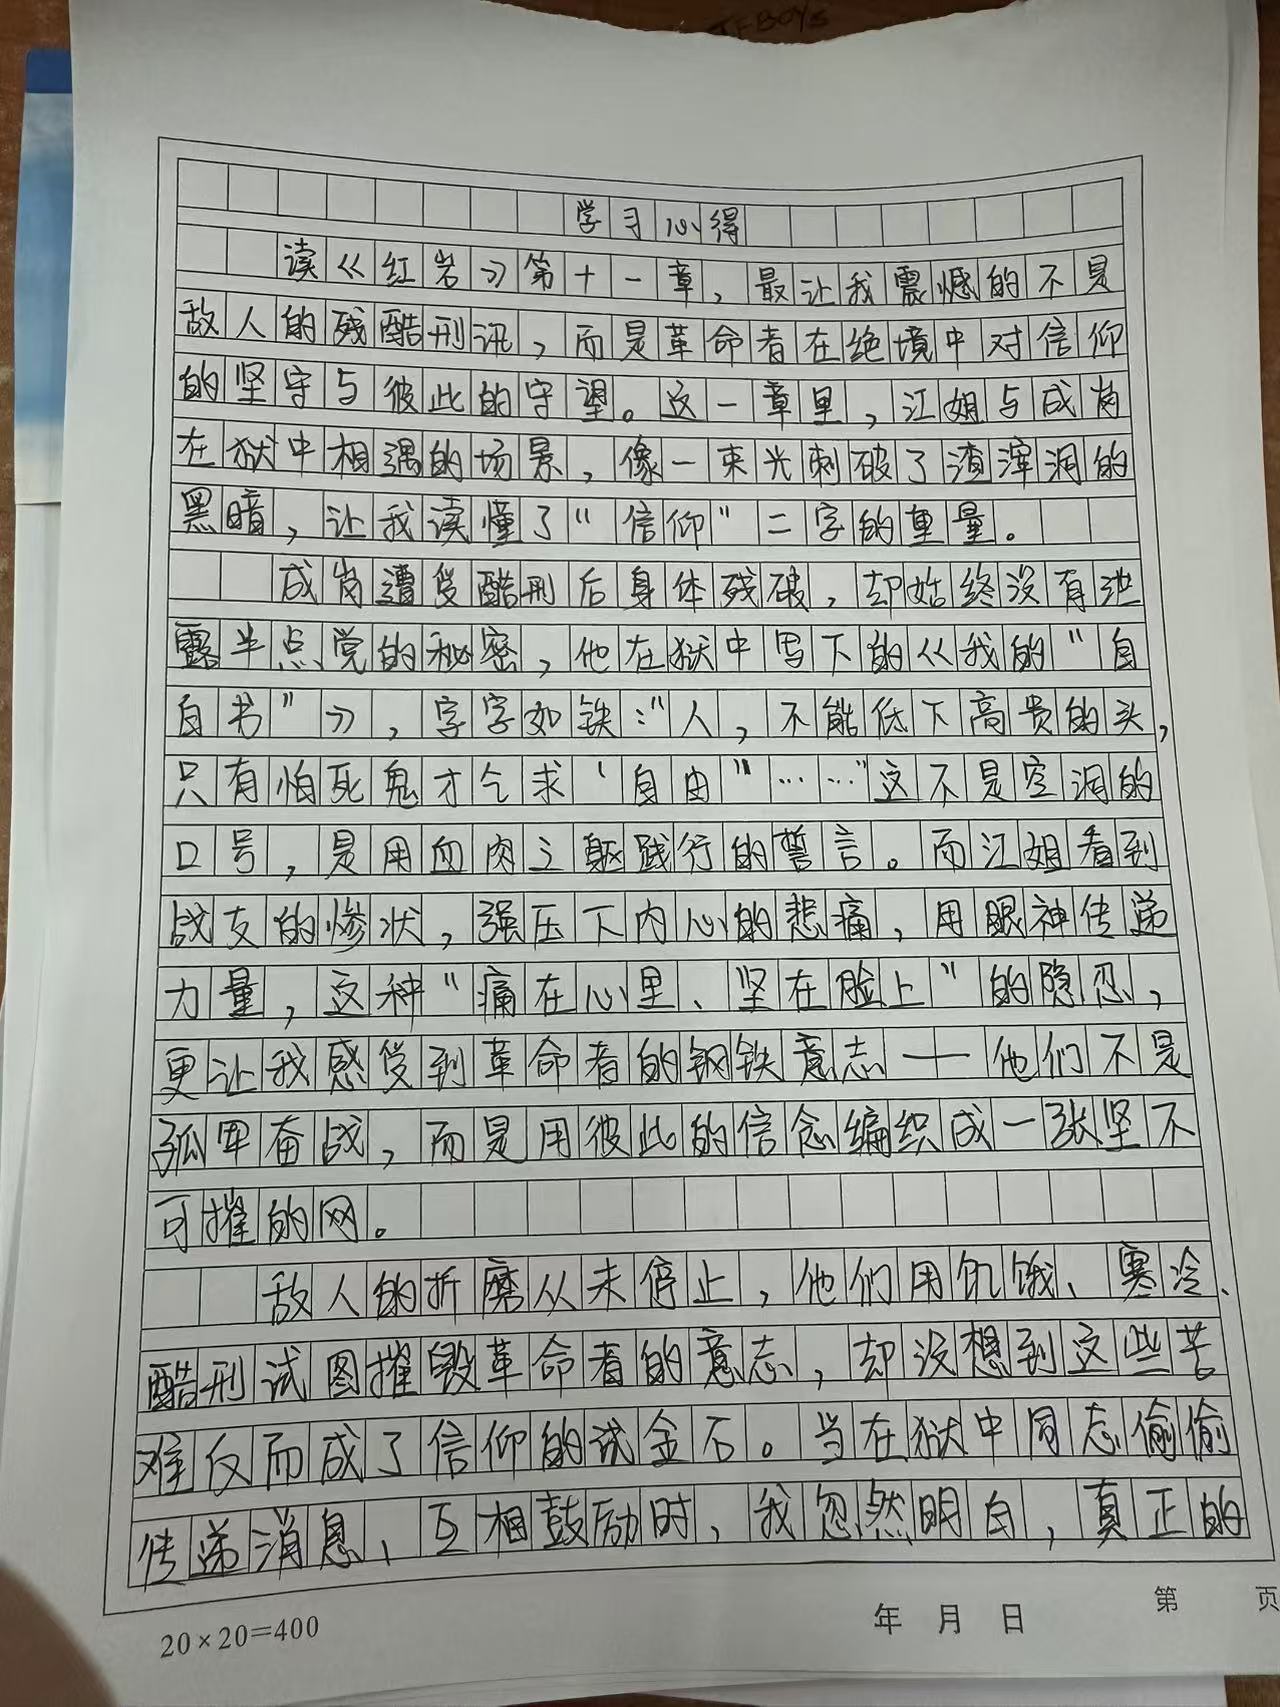 学习心得
读《红岩》第十一章，最让我震憾的不是
敌人的残酷刑讯，而是革命者在绝境中对信仰
的坚守与彼此的守望。这一章里，江姐与成岗
在狱中相遇的场景，像一束光刺破了渣滓洞的
黑暗，让我读懂了“信仰”二字的重量。
成岗遭受酷刑后身体残破，却始终没有泄
露半点党的秘密，他在狱中写下的《我的“自
白书”》，字字如铁：“人，不能低下高贵的头，
只有怕死鬼才乞求‘自由’”……”这不是空洞的
口号，是用血肉之躯践行的誓言。而江姐看到
战友的惨状，强压下内心的悲痛，用眼神传递
力量，这种“痛在心里、坚在脸上”的隐忍，
更让我感受到革命者的钢铁意志——他们不是
孤军奋战，而是用彼此的信念编织成一张坚不
可摧的网。
敌人的折磨从未停止，他们用饥饿、寒冷、
酷刑试图摧毁革命者的意志，却没想到这些苦
难反而成了信仰的试金石。当在狱中同志偷偷
传递消息、互相鼓励时，我忽然明白，真正的
20×20=400
年 月 日
第 页